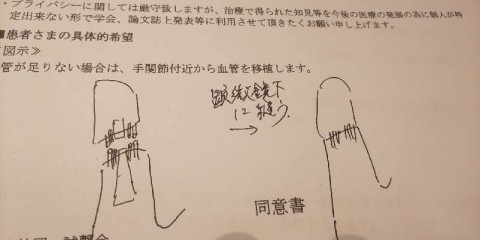 ・プライバシーに関しては厳守致しますが、治療で得られた知見等を今後の医療の発展の為に個人が特
定出来ない形で学会、論文誌上発表等に利用させて頂きたくお願い申し上げます。
■患者さまの具体的希望
図示≫
管が足りない場合は、手関節付近から血管を移植します。
顕微鏡下
に縫う
→
同意書